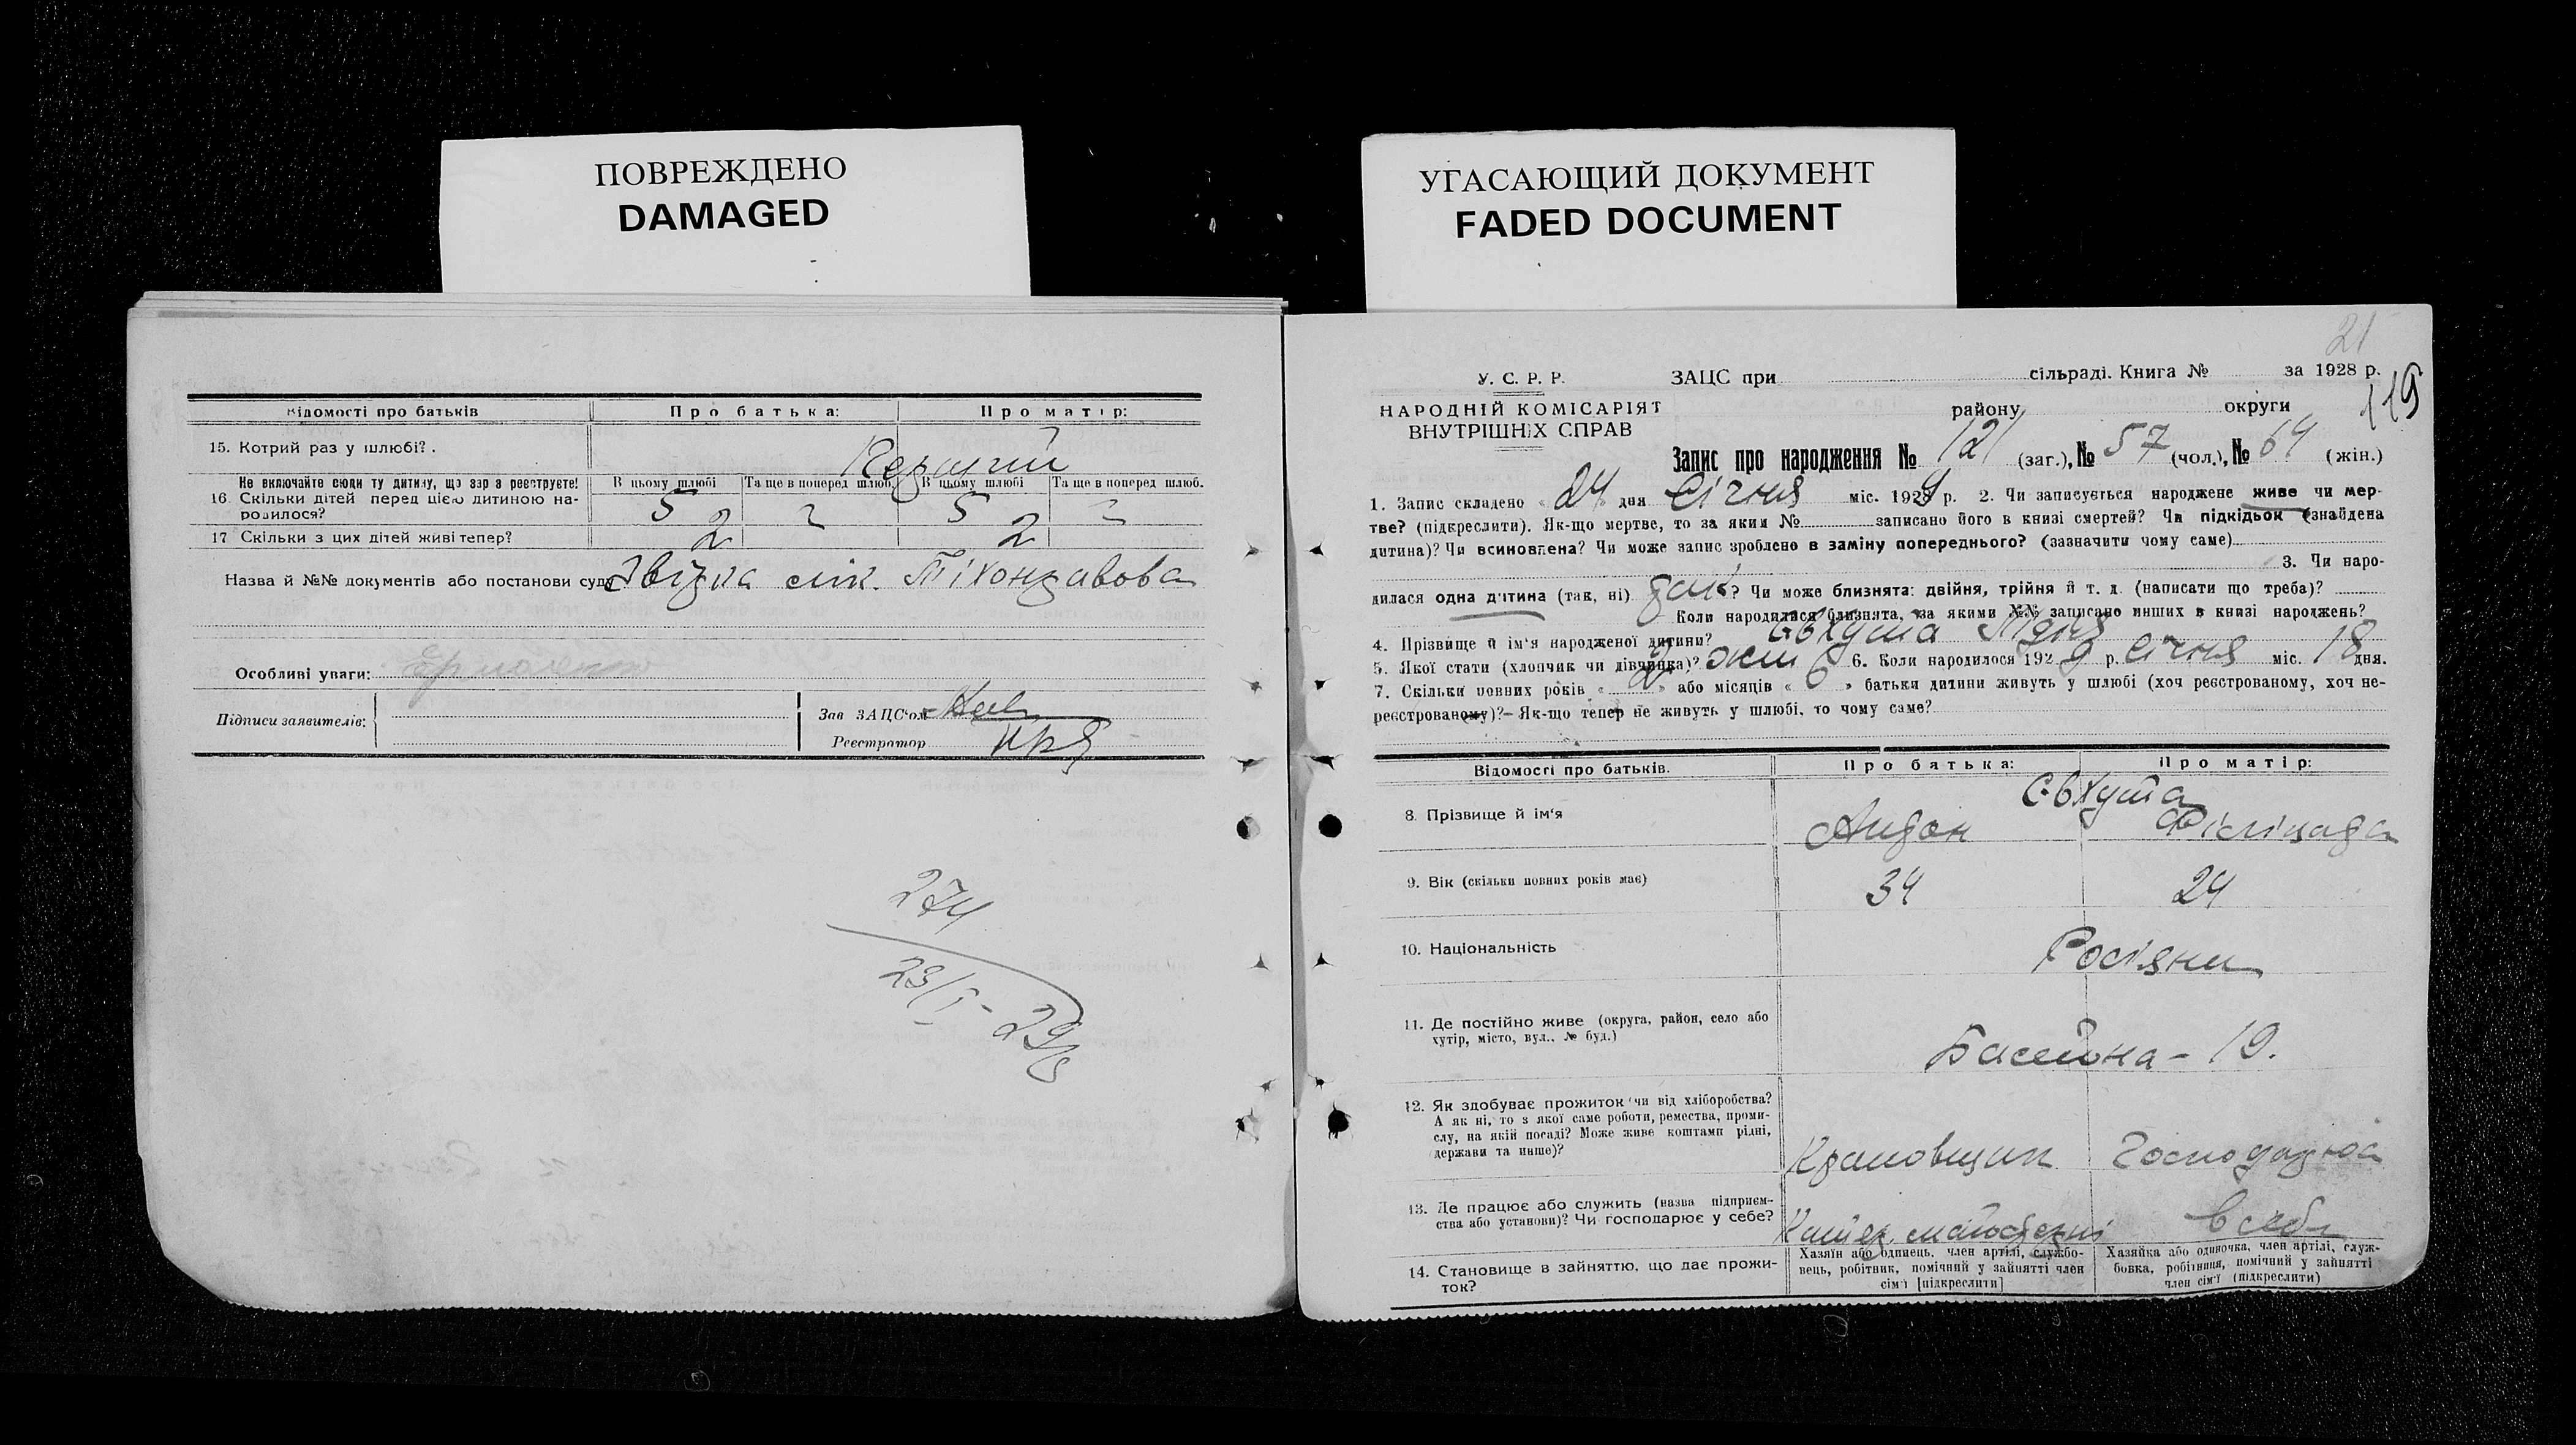 ПОВРЕЖДЕНО
DAMAGED
УГАСАЮЩИЙ ДОКУМЕНТ
FADED DOCUMENT
Відомості про батьків Про батька: Про матір:
15. Котрий раз у шлюбі?
Не включайте сюди ту дитину, що зараз реєструєте!
В цьому шлюбі Та ще в поперед шлюб. В цьому шлюбі Та ще в поперед шлюб.
16 Скільки дітей перед цією дитиною народилося? 5 5
17 Скільки з цих дітей живі тепер? 2 2
Назва й №№ документів або постанови суду Звідка лік.
Особливі уваги:
Підписи заявителів:
Зав ЗАЦС'ом
Реєстратор
274
23/I-29
21
У. С. Р. Р. ЗАЦС при сільраді. Книга № за 1928 р.
119
НАРОДНІЙ КОМІСАРІЯТ района округи
ВНУТРІШНІХ СПРАВ
Запис про народження № 121 (заг.), № 57 (чол.), № 64 (жін.)
1. Запис складено « 24 » дня Січня міс. 1929 р. 2. Чи записується народжене живе чи мер-
тве? (підкреслити). Як-що мертве, то за яким № записано його в книзі смертей? Чи підкідьок (знайдена
дитина)? Чи всиновлена? Чи може запис зроблено в заміну попереднього? (зазначити чому саме)
3. Чи наро-
дилася одна дитина (так, ні) ? Чи може близнята: двійня, трійня й т. д. (написати що треба)?
Коли народилися близнята, за якими №№ записано инших в книзі народжень?
4. Прізвище й ім'я народженої дитини? Євхута Лідія
5. Якої стати (хлопчик чи дівчинка)? жін 6. Коли народилося 1929 р. Січня міс. 18 дня.
7. Скільки повних років « 2 » або місяців « 6 » батьки дитини живуть у шлюбі (хоч реєстрованому, хоч не-
реєстрованому)?— Як-що тепер не живуть у шлюбі, то чому саме?
Відомості про батьків. Про батька: Про матір:
Євхута
8. Прізвище й ім'я Андон Філіцада
9. Вік (скільки повних років має) 34 24
10. Національність Росіяни
11. Де постійно живе (округа, район, село або
хутір, місто, вул., № буд.) Басейна - 19.
12. Як здобуває прожиток чи від хліборобства?
А як ні, то з якої саме роботи, ремества, проми-
слу, на якій посаді? Може живе коштами рідні,
держави та инше)? Крановщик
13. Де працює або служить (назва підприєм-
ства або установи)? Чи господарює у себе? в себе
14. Становище в зайняттю, що дає прожи-
ток?
Хазяїн або одинець, член артілі, службо-
вець, робітник, помічний у зайнятті член
сім'ї [підкреслити]
Хазяйка або одиночка, член артілі, служ-
бовка, робітниця, помічний у зайнятті
член сім'ї (підкреслити)